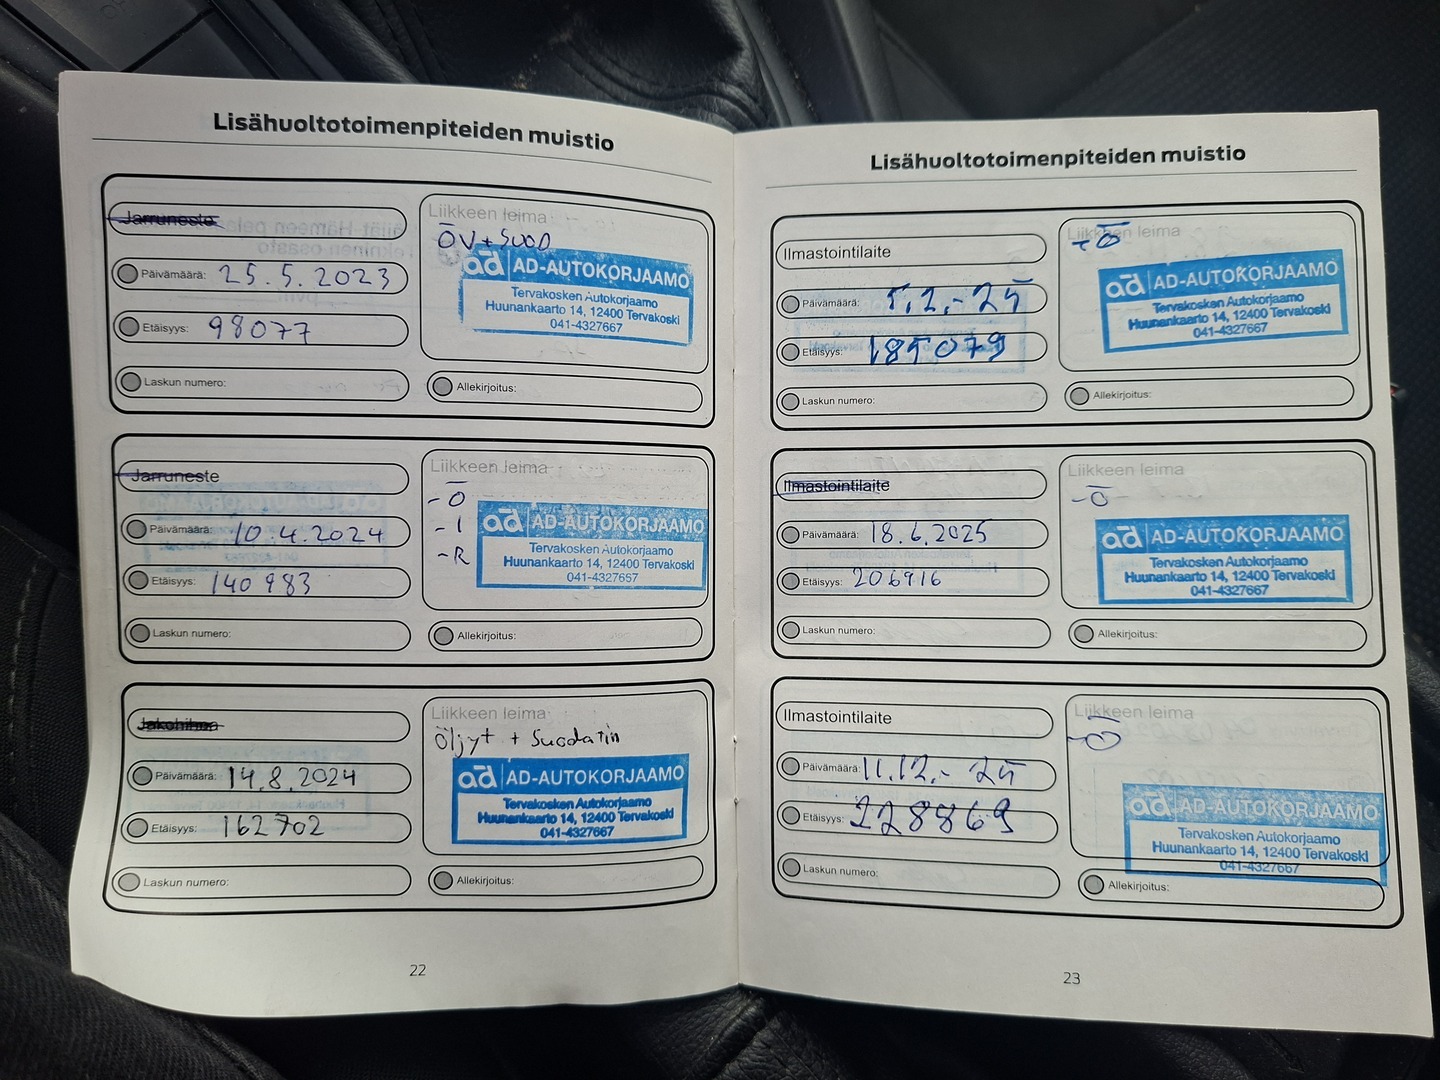 Lisähuoltotoimenpiteiden muistio
Jarruneste
Päivämäärä: 25.5.2023
Etäisyys: 98077
Laskun numero:
Liikkeen leima
ÖV + SUOD
ad AD-AUTOKORJAAMO
Tervakosken Autokorjaamo
Huunankaarto 14, 12400 Tervakoski
041-4327667
Allekirjoitus:
Jarruneste
Päivämäärä: 10.4.2024
Etäisyys: 140983
Laskun numero:
Liikkeen leima
- Ö
- I
- R
ad AD-AUTOKORJAAMO
Tervakosken Autokorjaamo
Huunankaarto 14, 12400 Tervakoski
041-4327667
Allekirjoitus:
Jakohihna
Päivämäärä: 14.8.2024
Etäisyys: 162702
Laskun numero:
Liikkeen leima
Öljyt + Suodatin
ad AD-AUTOKORJAAMO
Tervakosken Autokorjaamo
Huunankaarto 14, 12400 Tervakoski
041-4327667
Allekirjoitus:
22
Lisähuoltotoimenpiteiden muistio
Ilmastointilaite
Päivämäärä: 5.2.-25
Etäisyys: 185079
Laskun numero:
Liikkeen leima
- Ö
ad AD-AUTOKORJAAMO
Tervakosken Autokorjaamo
Huunankaarto 14, 12400 Tervakoski
041-4327667
Allekirjoitus:
Ilmastointilaite
Päivämäärä: 18.6.2025
Etäisyys: 206916
Laskun numero:
Liikkeen leima
- Ö
ad AD-AUTOKORJAAMO
Tervakosken Autokorjaamo
Huunankaarto 14, 12400 Tervakoski
041-4327667
Allekirjoitus:
Ilmastointilaite
Päivämäärä: 11.12.-25
Etäisyys: 228869
Laskun numero:
Liikkeen leima
- Ö
ad AD-AUTOKORJAAMO
Tervakosken Autokorjaamo
Huunankaarto 14, 12400 Tervakoski
041-4327667
Allekirjoitus:
23